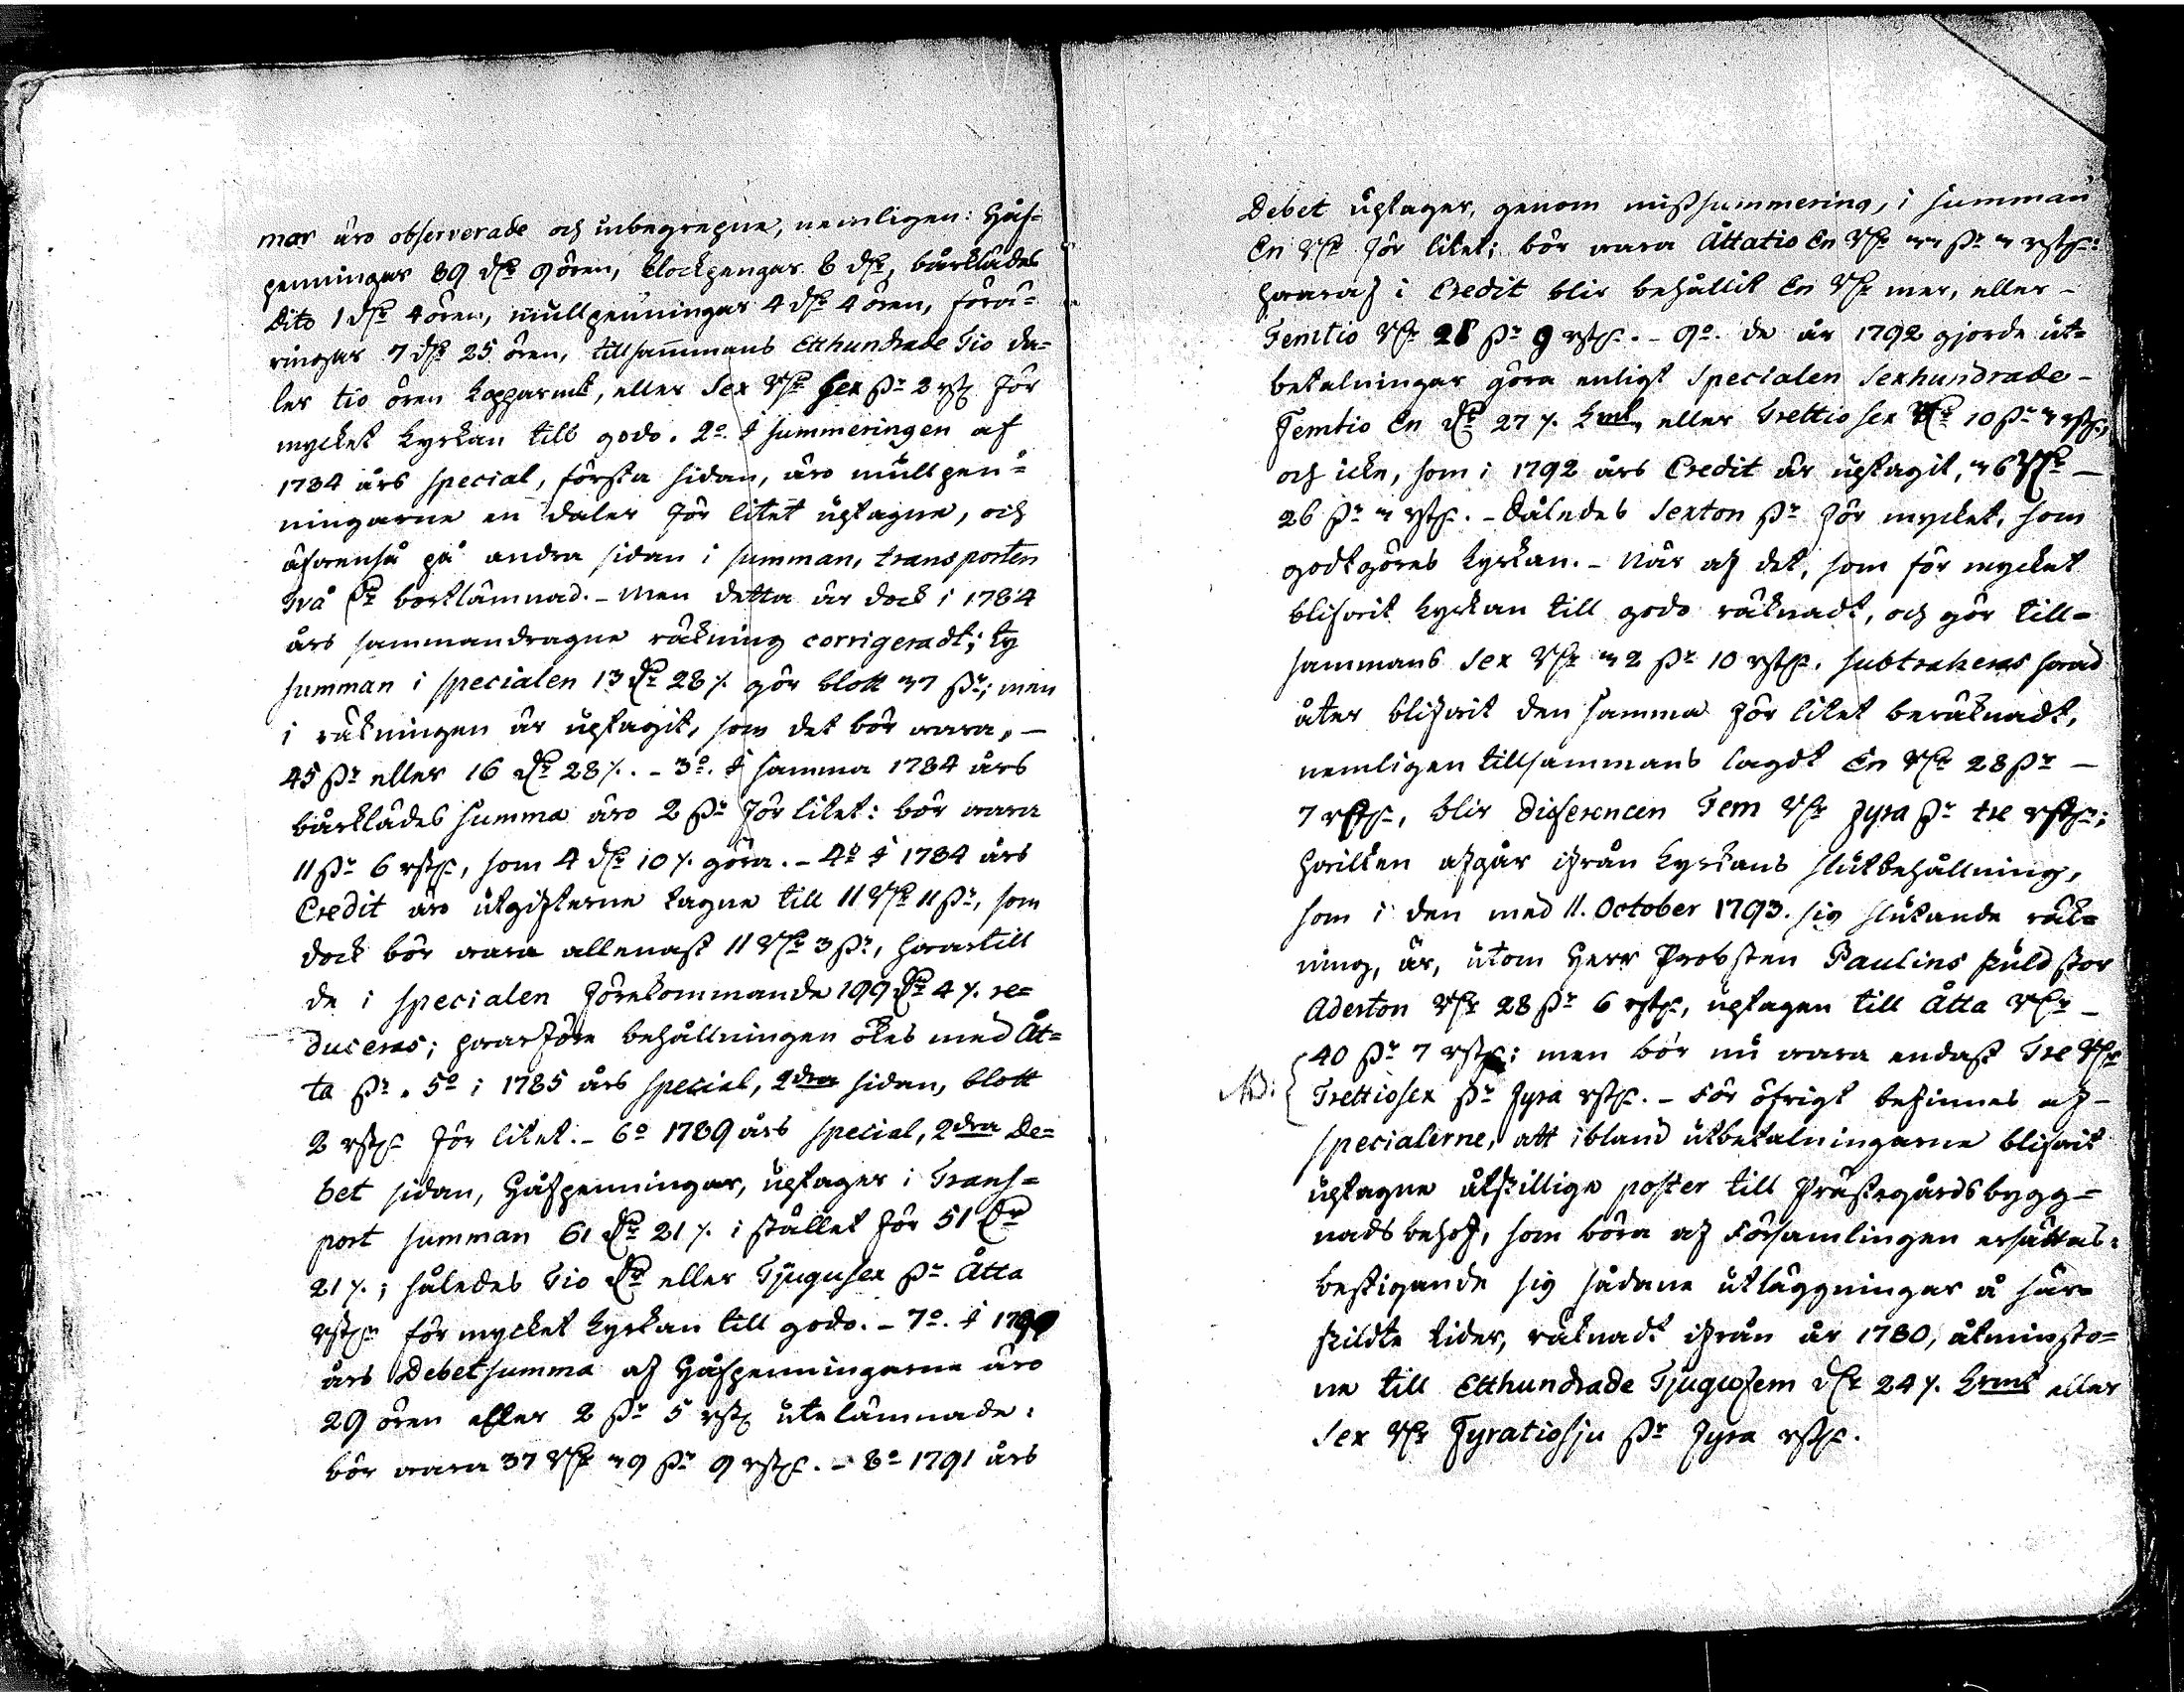 mor äro observerade och inbegrepne, nemligen: Håf=
penningar 89 dlr 9 ören, klockpengar 8 dlr, bårklädes
Dito 1 dlr 4 ören, mullpenningar 4 dlr 4 ören, förä=
ringar 7 dlr 25 ören, tillsammans Etthundrade Tio da=
ler tio ören kopparmt, eller Sex Rdr Sex sk 2 rst för
mycket kyrkan till godo. 2o. I summeringen af
1784 års special, första sidan, äro mullpen=
ningarne en daler för litet uptagne, och
äfvenså på andra sidan i summan, transporten
två dr bortlämnad. – Men detta är dock i 1784
års sammandragne räkning corrigeradt; ty
summan i specialen 13 dr 28 /. gör blott 37 sk; men
i räkningen är uptagit, som det bör vara, –
45 sk eller 16 dr 28 /. – 3o. I samma 1784 års
bårklädes summa äro 2 sk för litet: bör vara
11 sk 6 rst, som 4 dlr 10 /. göra. – 4o I 1784 års
Credit äro utgifterne tagne till 11 Rdr 11 sk, som
dock bör vara allenast 11 Rdr 3 sk, hvartill
de i specialen förekommande 199 dr 4 /. re=
duceras; hvarföre behållningen ökes med Åt=
ta sk. 5o i 1785 års special, 2dra sidan, blott
2 rst för litet. – 6o 1789 års special, 2dra De=
bet sidan, Håfpenningar, uptager i Trans=
port summan 61 dr 21 /. i stället för 51 dr
21 /.; således Tio dr eller Tjugusex sk Åtta
rst för mycket kyrkan till godo. – 7o. I 1790
års Debetsumma af Håfpenningarne äro
29 ören eller 2 sk 5 rst utelämnade:
bör vara 37 Rdr 39 sk 9 rst. – 8o 1791 års
Debet uptager, genom missummering, i summan
En Rdr för litet; bör vara Åttatio En Rdr sk rst:
hvaraf i Credit blir behållit En Rdr mer, eller –
Femtio Rdr 28 sk 9 rst. – 9o. de år 1792 gjorde ut=
betalningar göra enligt Specialen Sexhundrade –
Femtio En dr 27 /. kmt, eller Trettio sex Rdr 10 sk 3 rst,
och icke, som i 1792 års Credit är uptagit, 36 Rdr –
26 sk 3 rst. – Således Sexton sk för mycket, som
godtgöres kyrkan. – När af det, som för mycket
blifvit kyrkan till godo räknadt, och gör till=
sammans Sex Rdr 32 sk 10 rst, subtraheras hvad
åter blifvit den samma för litet beräknadt,
nemligen tillsammans lagdt En Rdr 28 sk –
7 rst, blir differencen Fem Rdr fyra sk tre rst;
hvilken afgår ifrån kyrkans slutbehållning,
som i den med 11. October 1793. sig slutande räk=
ning, är, utom Herr Probsten Paulins skuld stor
Aderton Rdr 28 sk 6 rst, uptagen till Åtta Rdr –
40 sk 7 rst: men bör nu vara endast Tre Rdr
NB: Trettiosex sk fyra rst. – För öfrigt befinnes af –
specialerne, att ibland utbetalningarne blifvit
uptagne åtskillige poster till Prästegårdsbygg=
nads behof, som böra af Församlingen ersättas:
bestigande sig sådane utläggningar å sär=
skildte tider, räknadt ifrån år 1780, åtminsto=
ne till Etthundrade Tjugufem dlr 24 /. krmt eller
Sex Rdr Fyratiosju sk fyra rst.